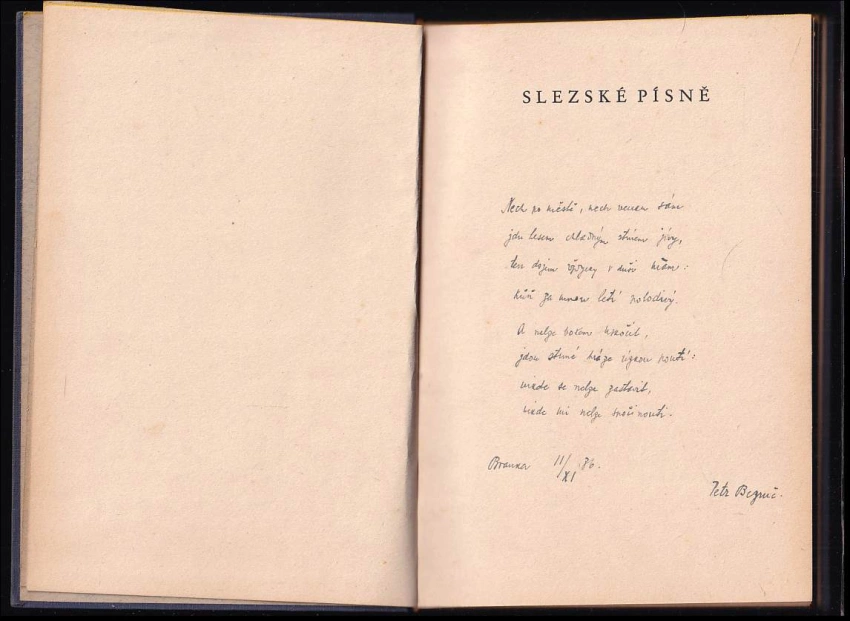 SLEZSKÉ PÍSNĚ
Nech po městě, nech venem sám
jdu lesem chladným stínem jívy,
ten dojem vždycky v duši mám:
kůň za mnou letí polodivý.
A nelze bokem uskočit,
jdou strmé hráze úzkou poutí:
nikde se nelze zastavit,
nikde mi nelze spočinouti.
Branka 11/XI
Petr Bezruč.